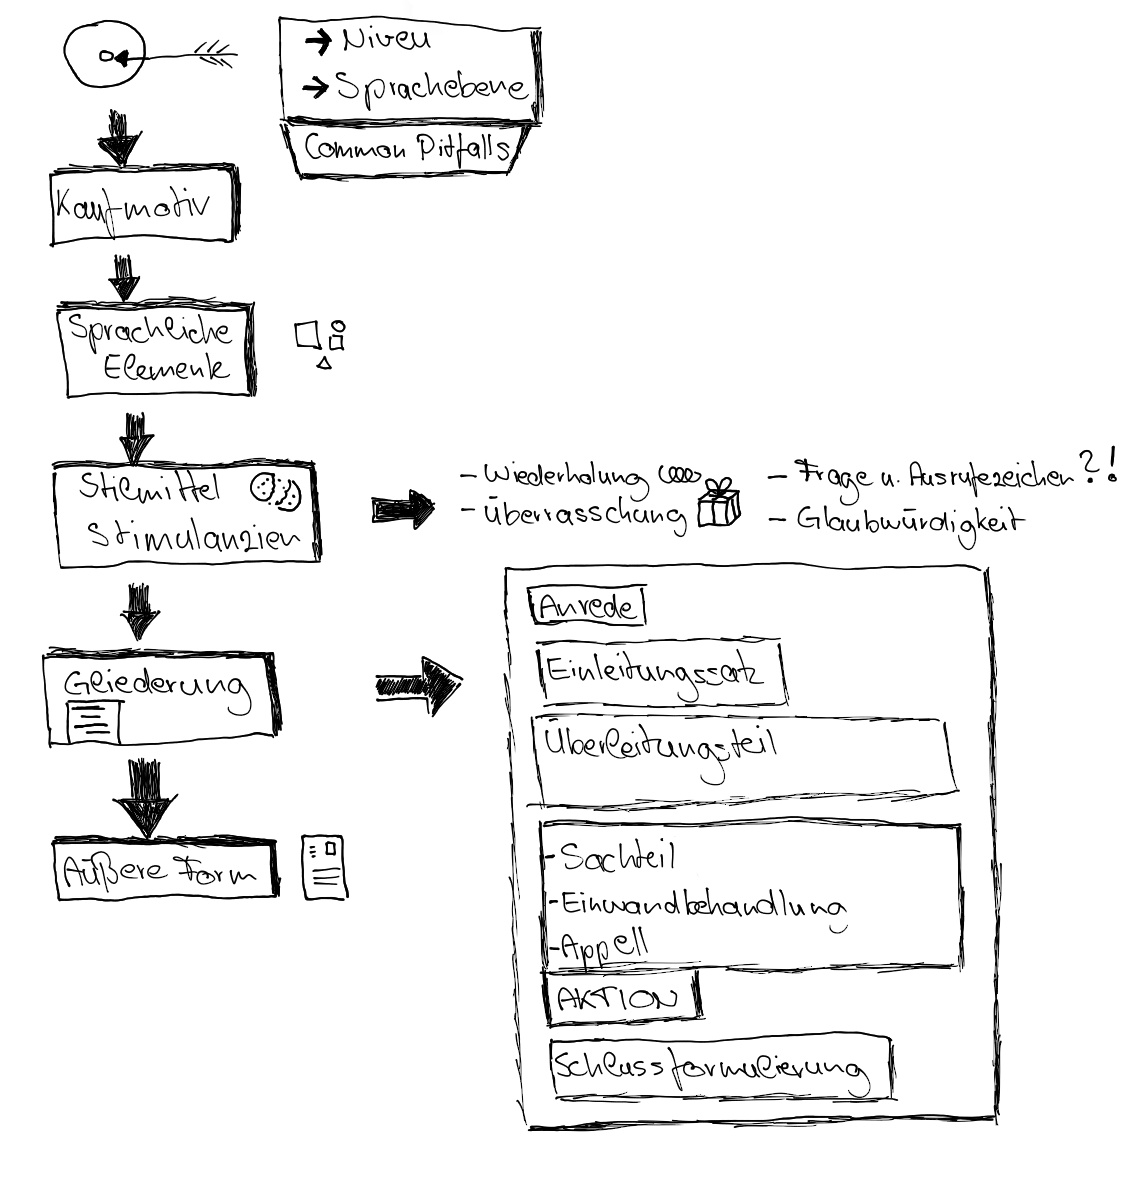 → Niveu
→ Sprachebene
Common Pitfalls
Kaufmotiv
Sprachliche
Elemente
Stilmittel
Stimulanzien
- Wiederholung
- Überrasschung
- Frage u. Ausrufezeichen ?!
- Glaubwürdigkeit
Gliederung
Anrede
Einleitungssatz
Überleitungsteil
- Sachteil
- Einwandbehandlung
- Appell
AKTION
Schlussformulierung
Äußere Form